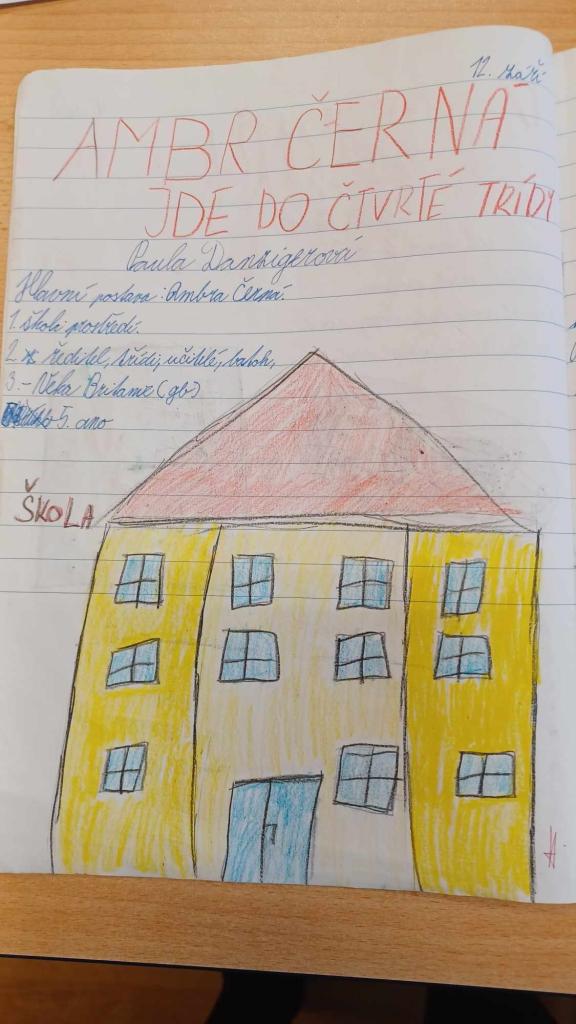 12. září
AMBR ČERNÁ
JDE DO ČTVRTÉ TŘÍDY
Paula Danzigerová
Hlavní postava: Ambra Černá.
1. škola: prostředí.
2. ředitel, třídí, učitelé, batoh,
3. - Velka Britanie (gb)
5. ano
ŠKOLA